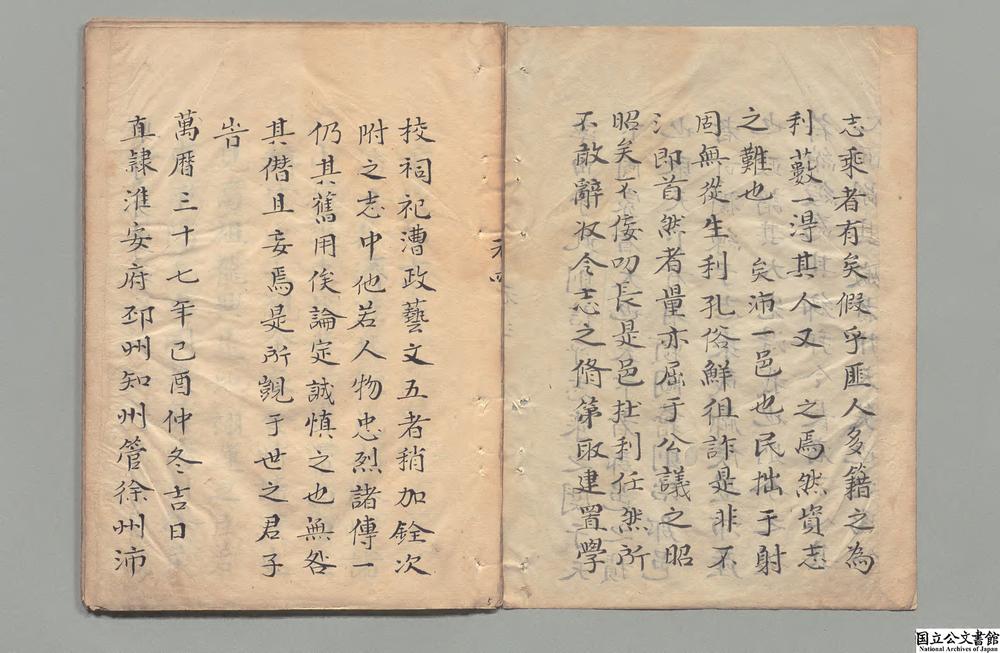 志乘者有矣假乎匪人多籍之為
利藪一淂其人又之焉然賫志
之難也矣沛一邑也民拙于射
固無從生利孔俗鮮徂詐是非不
即首然者量亦屈于公議之昭
昭矣不佞叨長是邑扗刹任然所
不敢辭奴令志之脩第取建置學
校祠祀漕政藝文五者稍加銓次
附之志中他若人物忠烈諸傳一
仍其舊用俟論定誠慎之也無咎
其僭且妄焉是所覬于世之君子
旹
萬曆三十七年己酉仲冬吉日
直隷淮安府邳州知州管徐州沛
国立公文書館
National Archives of Japan